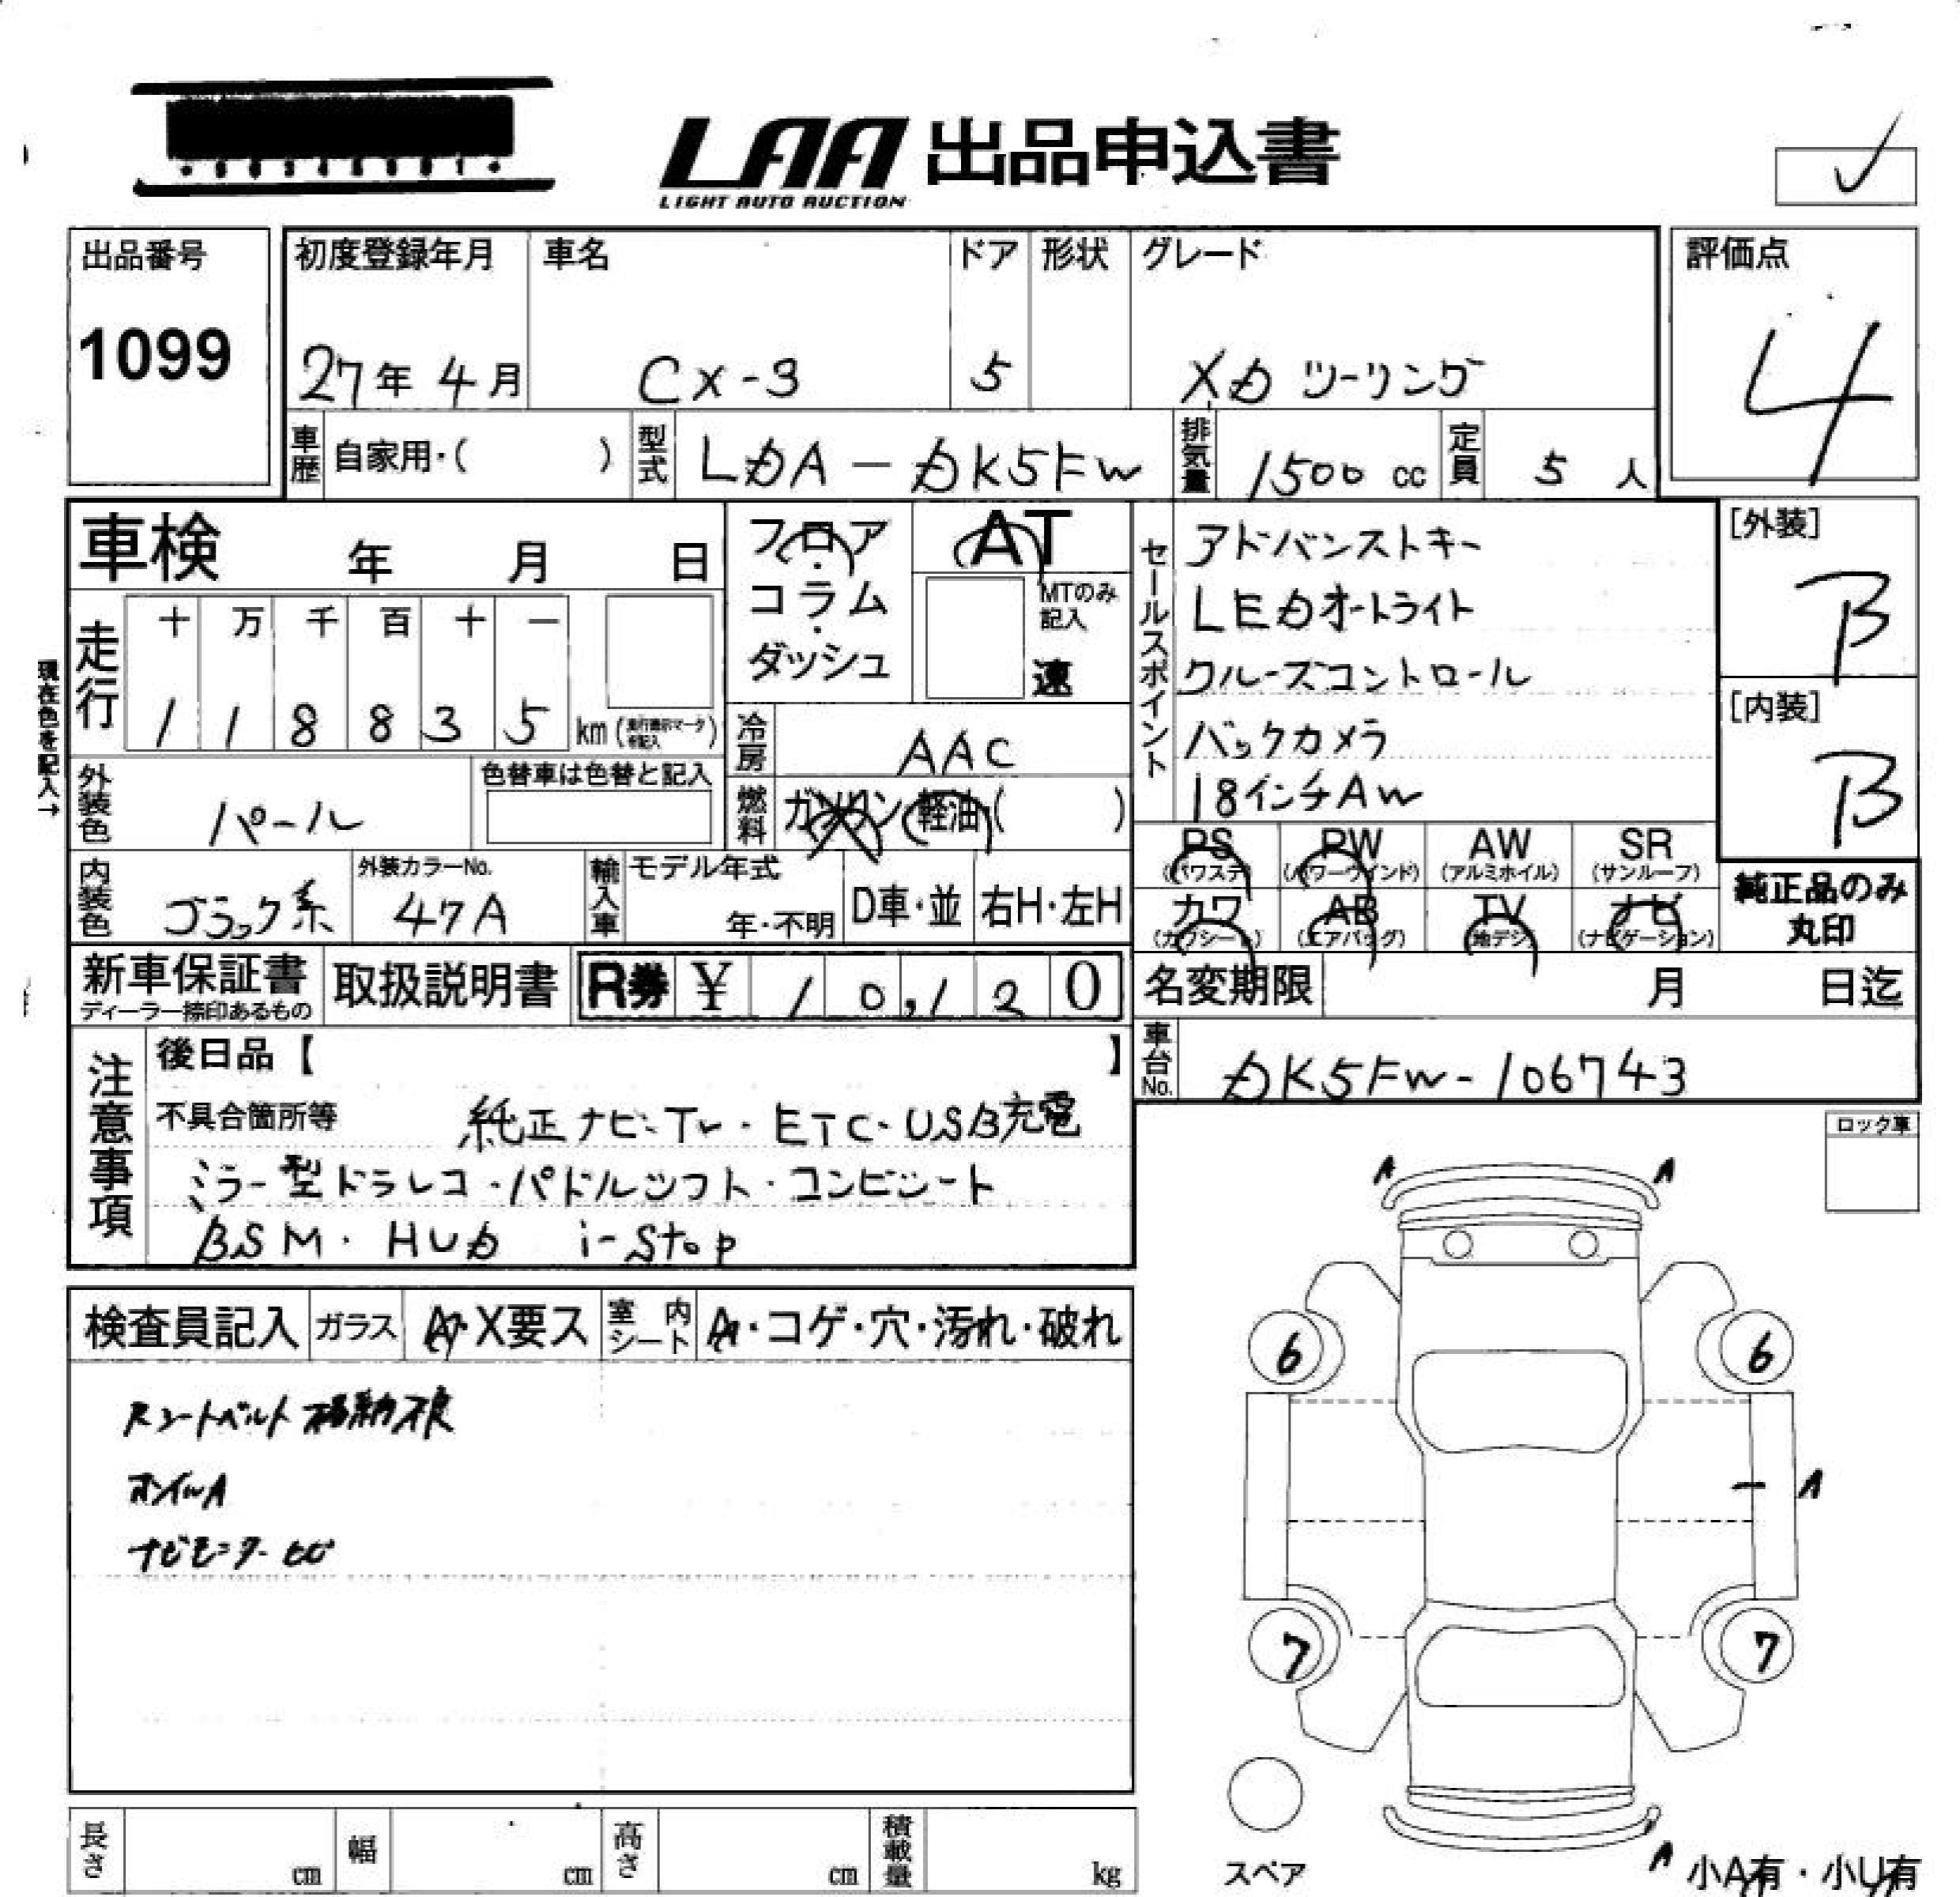 LAA 出品申込書
LIGHT AUTO AUCTION
出品番号
1099
初度登録年月
27年 4月
車名
CX-3
ドア
5
形状
グレード
XD ツーリング
評価点
4
車歴
自家用・( )
型式
LDA-DK5FW
排気量
1500 cc
定員
5 人
車検 年 月 日
フロア・コラム・ダッシュ
AT
MTのみ記入
速
セールスポイント
アドバンストキー
LEDオートライト
クルーズコントロール
バックカメラ
18インチAW
[外装]
B
[内装]
B
現在色を記入→
走行
十 万 千 百 十 一
1 1 8 8 3 5 km
冷房
AAC
外装色
パール
色替車は色替と記入
燃料
ガソリン・軽油( )
内装色
ブラック系
外装カラーNo.
47A
輸入車
モデル年式
年・不明
D車・並
右H・左H
PS
(パワステ)
PW
(パワーウインド)
AW
(アルミホイル)
SR
(サンルーフ)
カワ
(カワシート)
AB
(エアバッグ)
TV
(地デジ)
ナビ
(ナビゲーション)
純正品のみ
丸印
新車保証書
ディーラー捺印あるもの
取扱説明書
R券 ¥ 10,120
名変期限 月 日迄
車台No.
DK5FW-106743
注意事項
後日品【 】
不具合箇所等
純正ナビ・TV・ETC・USB充電
ミラー型ドラレコ・パドルシフト・コンビシート
BSM・HUD i-stop
ロック車
A A
検査員記入
ガラス
A・X要ス
室内シート
A・コゲ・穴・汚れ・破れ
シートベルト格納不良
ホイルA
ナビモニター
6 6
A
7 7
スペア
A
小A有・小U有
長さ cm
幅 cm
高さ cm
積載量 kg